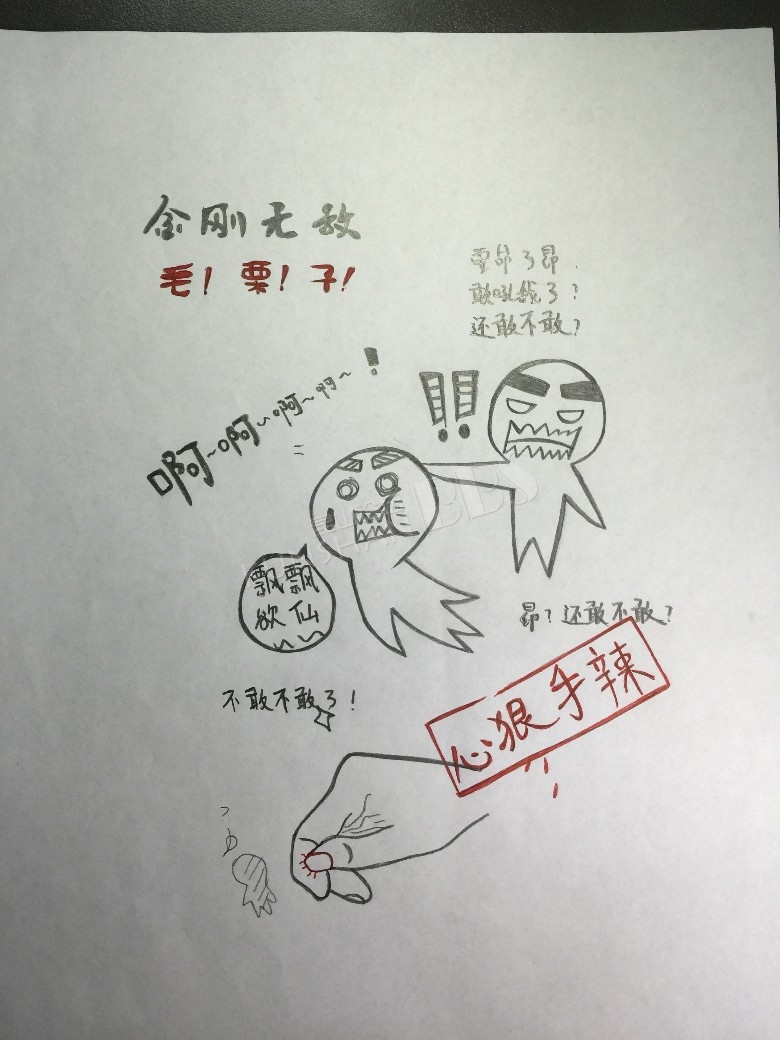 金刚无敌
毛！栗！子！
要命了昂
敢吼我了？
还敢不敢？
啊~啊~啊~啊~！
！！
飘飘
欲仙
昂？还敢不敢？
心狠手辣
不敢不敢了！